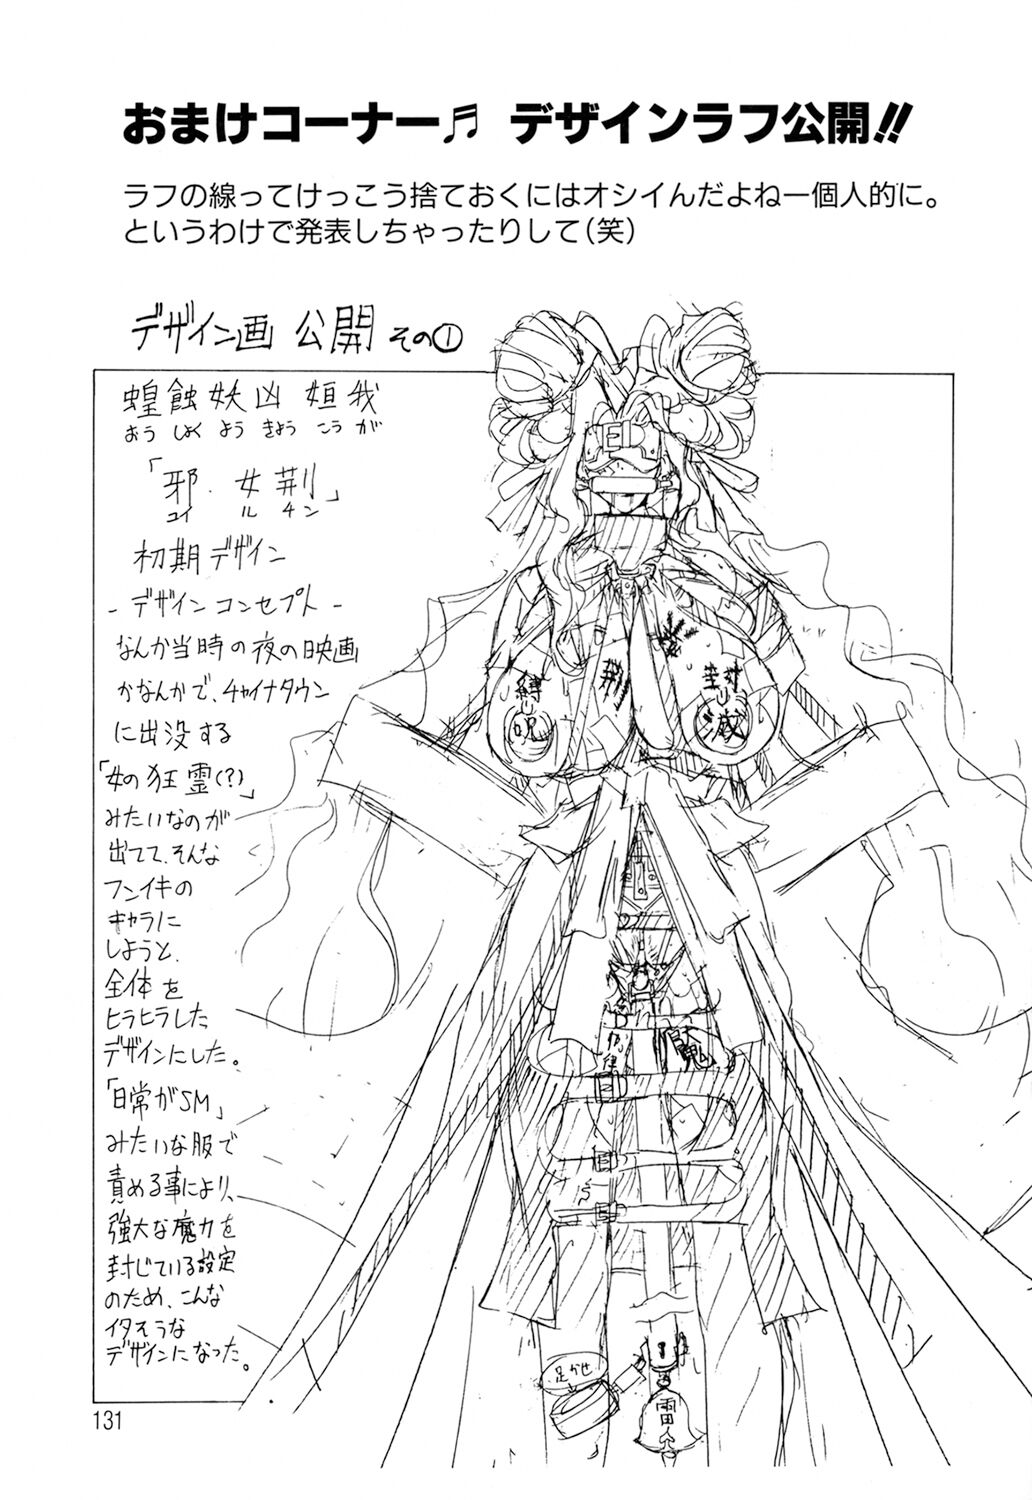 おまけコーナー♬ デザインラフ公開!!
ラフの線ってけっこう捨ておくにはオシイんだよねー個人的に。
というわけで発表しちゃったりして(笑)
デザイン画 公開 その①
蝗蝕妖凶 姮我
おう しょく よう きょう こう が
「邪・女荊」
ユイ ル チン
初期デザイン
- デザインコンセプト -
なんか当時の夜の映画
かなんかで、チャイナタウン
に出没する
「女の狂霊(?)」
みたいなのが
出てて、そんな
フンイキの
キャラに
しようと、
全体を
ヒラヒラした
デザインにした。
「日常がSM」
みたいな服で
責める事により、
強大な魔力を
封じている設定
のため、こんな
イタそうな
デザインになった。
縛
呪
荊
封
滅
魔
足かせ
雷
131